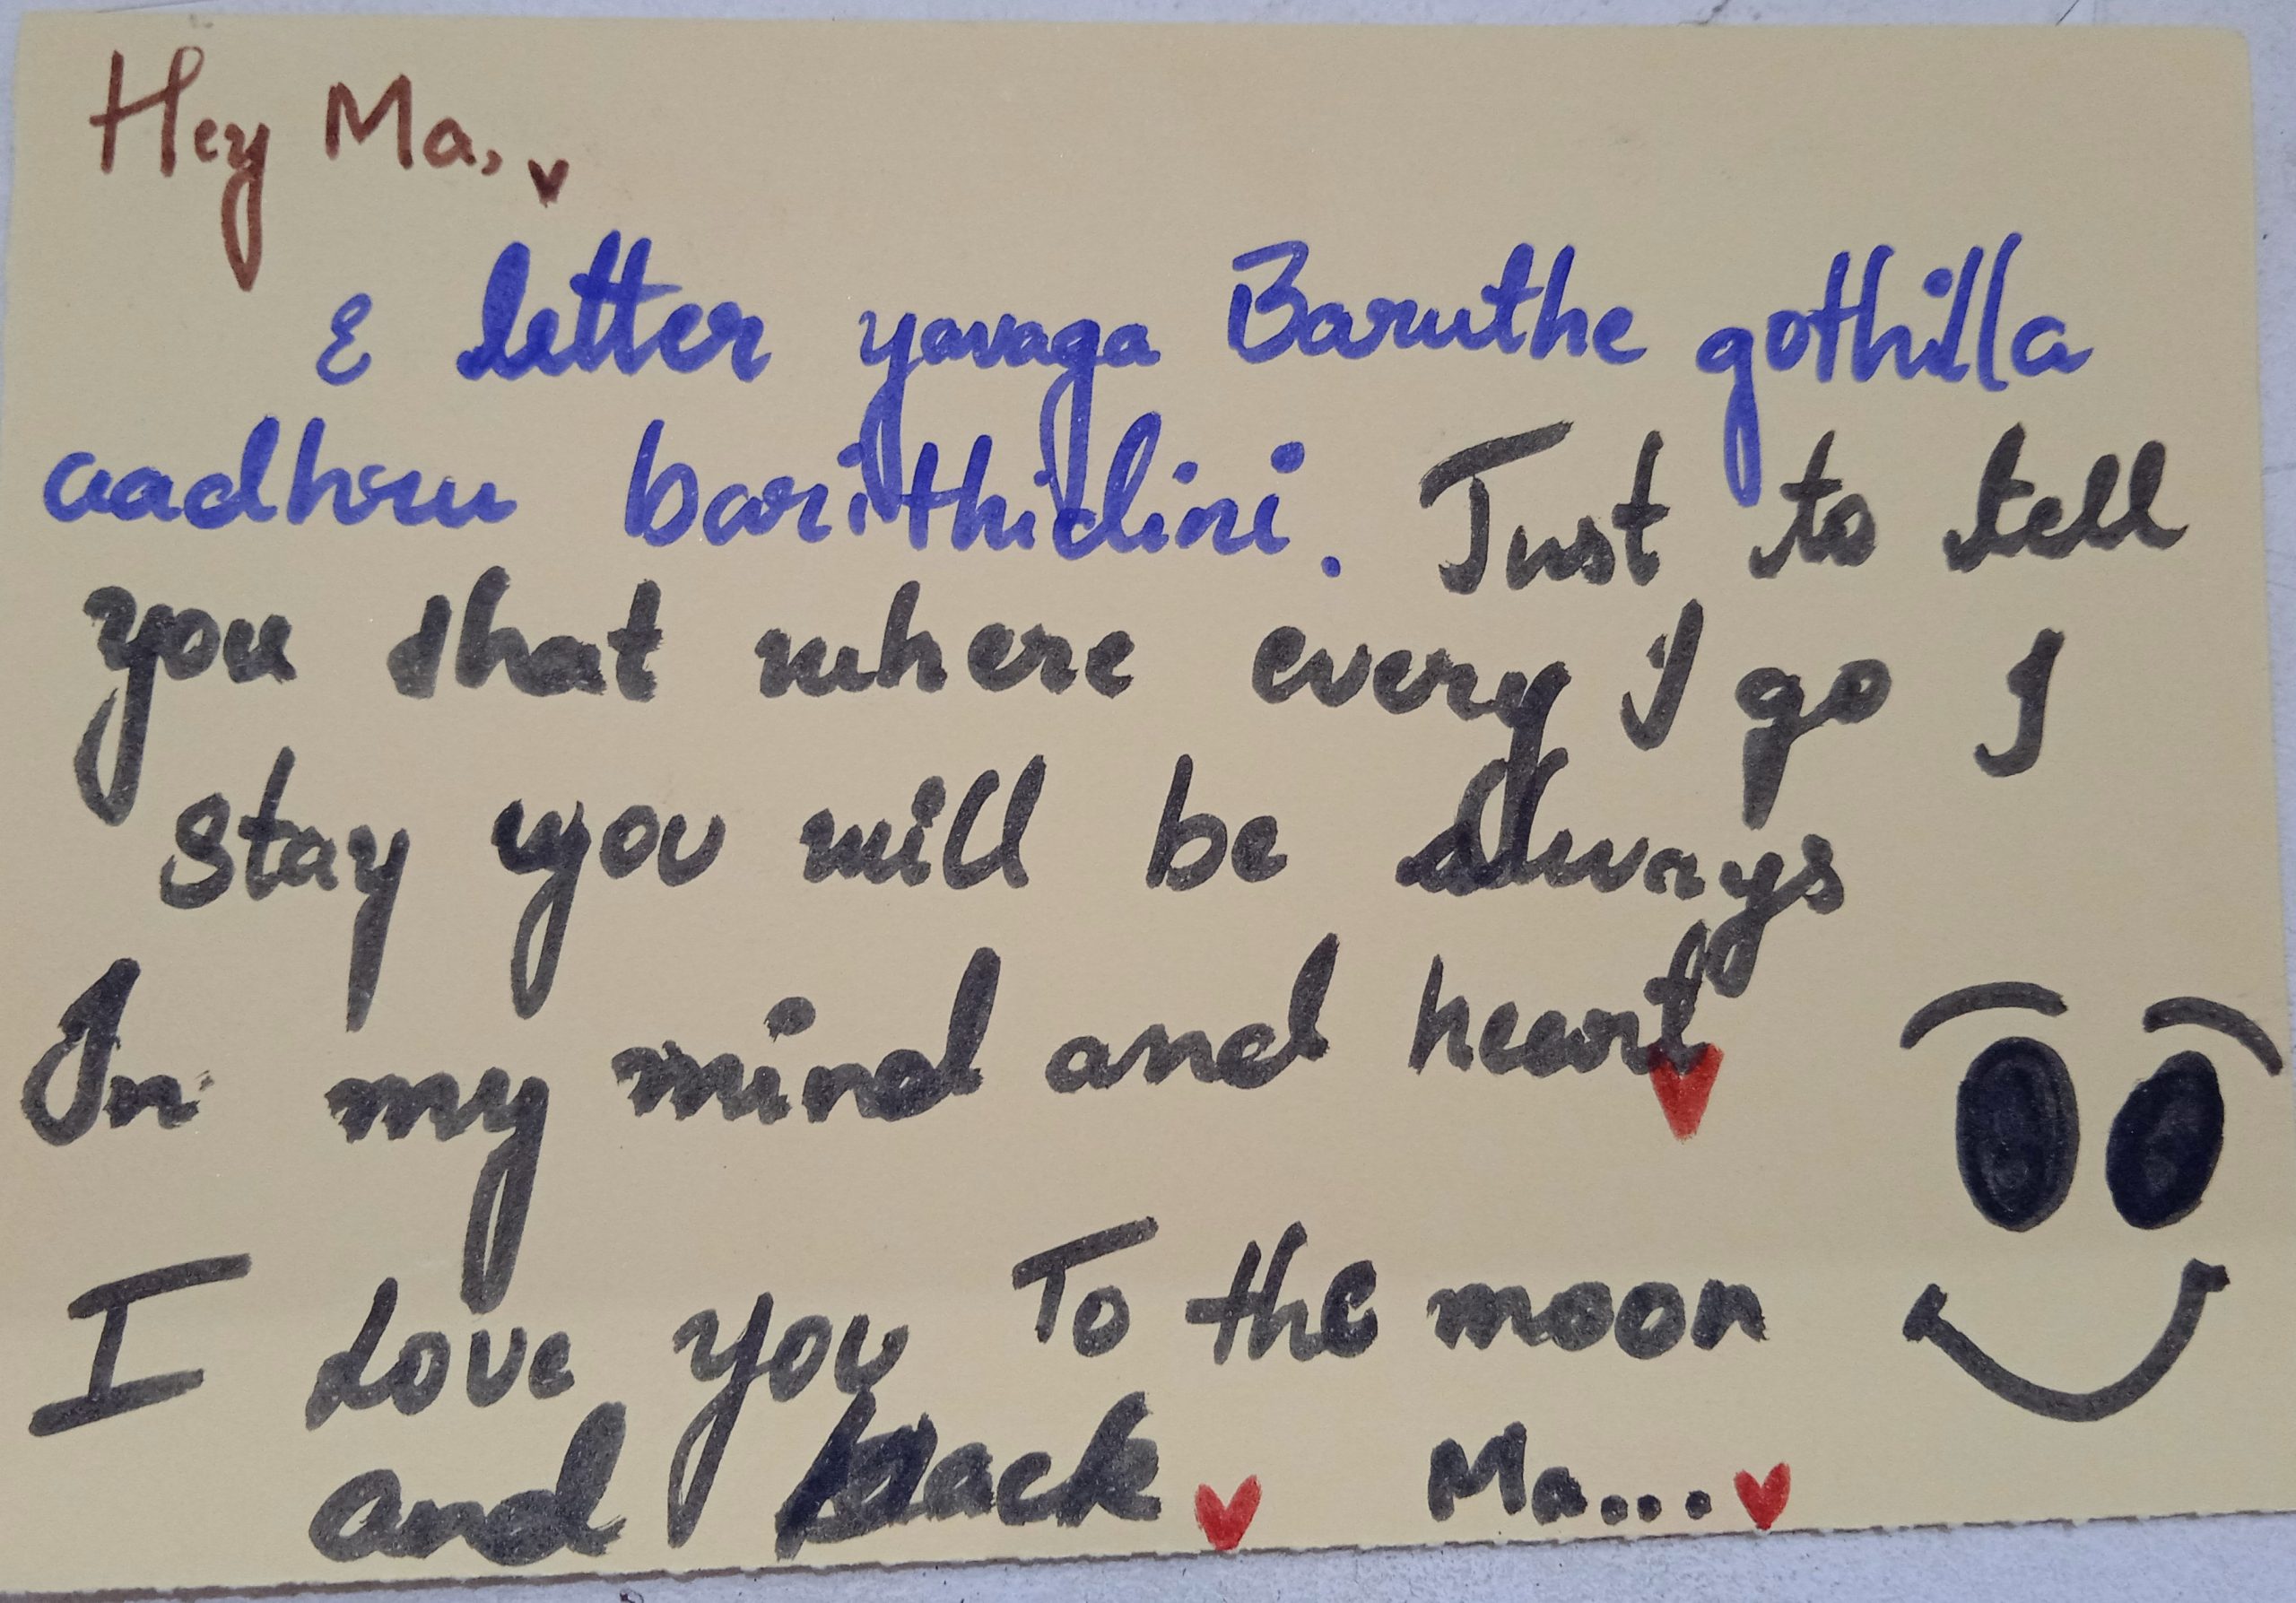 Hey Ma,
E letter yavaga Baruthe gothilla
aadhru barithidini. Just to tell
you that where every I go I
stay you will be always
In my mind and heart
I Love you To the moon
and back Ma...